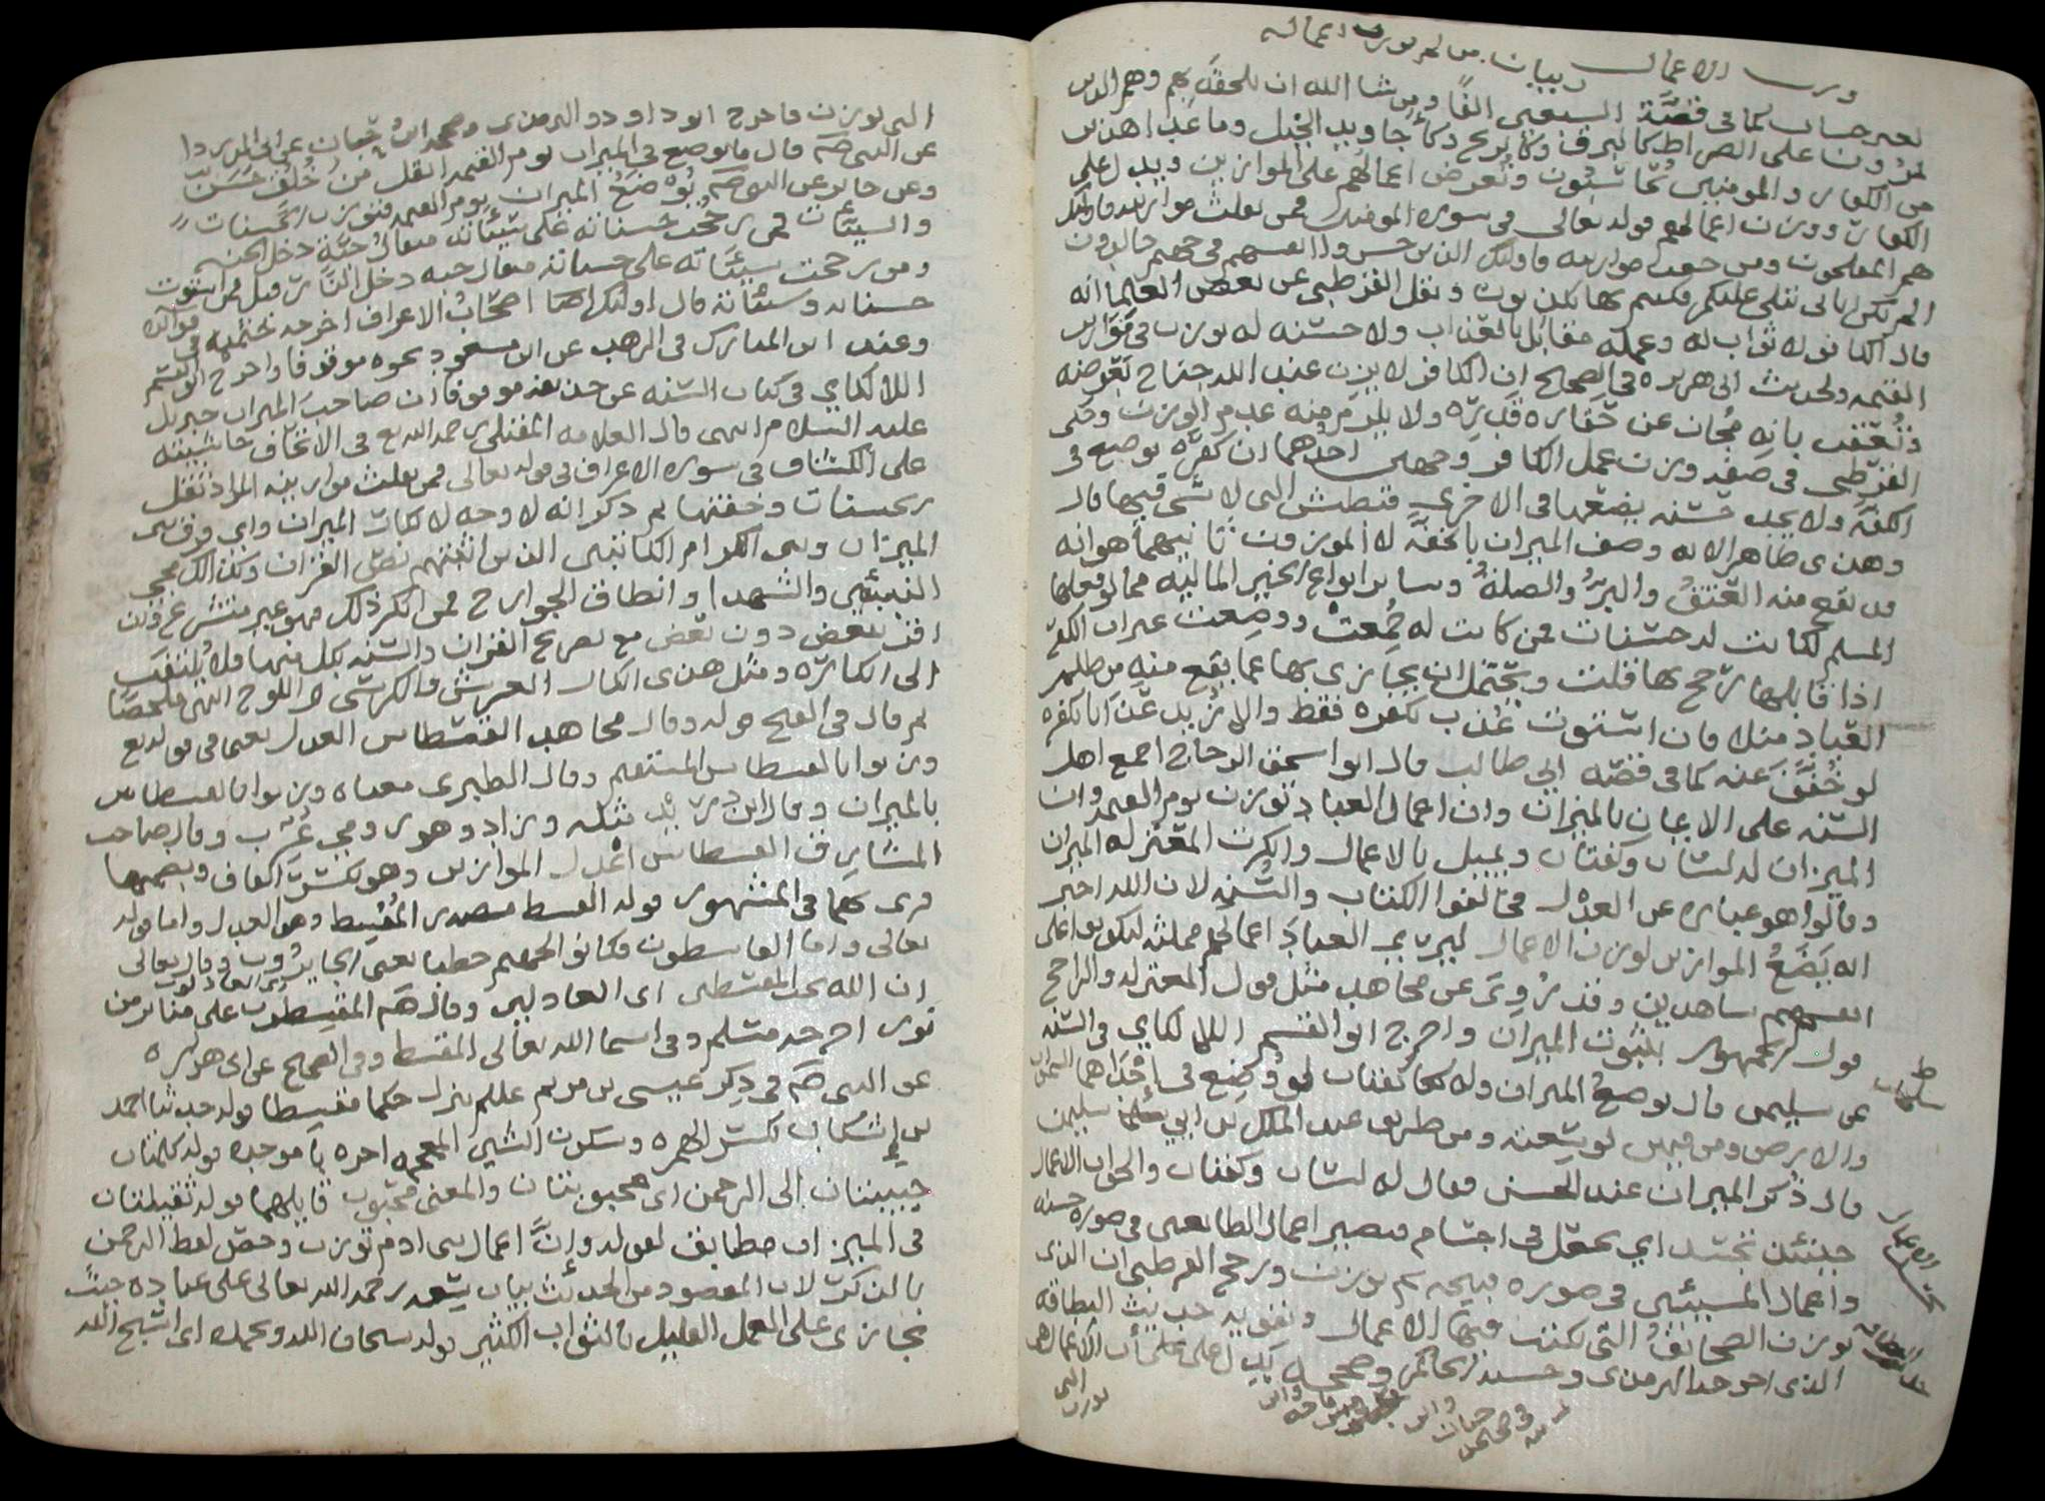 وزن الاعمال وبيان من لم توزن اعماله
بغير حساب كما في قصة السبعين الفا ومن شا الله ان يلحقه بهم وهم الذين
يمرون على الصراط كالبرق وكالريح وكاجاويد الخيل وما عدا هذين
من الكفار والمومنين يحاسبون وتعرض اعمالهم على الموازين ويدل على
الكفار ووزن اعمالهم قوله تعالى في سورة المومنين فمن ثقلت موازينه فاوليك
هم المفلحون ومن خفت موازينه فاوليك الذين خسروا انفسهم في جهنم خالدون
الم تكن اياتي تتلى عليكم فكنتم بها تكذبون ونقل القرطبي عن بعض العلما انه
قال الكافر لا ثواب له وعمله مقابل بالعذاب ولا حسنة له توزن في موازين
القيمة ولحديث ابي هريرة في الصحيح ان الكافر لا يزن عند الله جناح بعوضة
وتعقب بانه مجاز عن حقارة قدره ولا يلزم منه عدم الوزن وحكى
القرطبي في صفة وزن عمل الكافر وجهين احدهما ان كفره يوضع في
الكفة ولا يجد حسنة يضعها في الاخرى فتطيش التي لا شي فيها قال
وهذا ظاهر الاية وصف الميزان بالخفة لا الموزون ثانيهما هو انه
قد يقع منه العتق والبر والصلة وساير انواع الخير المالية مما لو فعلها
المسلم لكانت له حسنات فمن كانت له جمعت ووضعت غير ان الكفر
اذا قابلها رجح بها قلت ويحتمل ان يجازى بها عما يقع منه من ظلم
العباد مثلا فان استوت عذب بكفره فقط والا زيد عذابا بكفره
او خفف عنه كما في قصة ابي طالب قال ابو اسحق الزجاج اجمع اهل
السنة على الايمان بالميزان وان اعمال العباد توزن يوم القيمة وان
الميزان له لسان وكفتان ويميل بالاعمال وانكرت المعتزلة الميزان
وقالوا هو عبارة عن العدل فخالفوا الكتاب والسنة لان الله اخبر
انه يضع الموازين لوزن الاعمال ليرى العباد اعمالهم ممثلة ليكونوا على
انفسهم شاهدين وقد روي عن مجاهد مثل قول المعتزلة والراجح
قول الجمهور بثبوت الميزان واخرج ابو القسم اللالكاي في السنة
عن سليمن قال يوضع الميزان وله كفتان لو وضع في احداهما السموات
والارض ومن فيهن لوسعته ومن طريق عبد الملك بن ابي سليمن
قال ذكر الميزان عند الحسن فقال له لسان وكفتان والحق ان الاعمال
حينئذ تجسد اي تجعل في اجسام فتصير اعمال الطايعين في صورة حسنة
واعمال المسيئين في صورة قبيحة ثم توزن ورجح القرطبي ان الذي
يوزن الصحائف التي تكتب فيها الاعمال ويقويه حديث البطاقة
الذي اخرجه الترمذي وحسنه والحاكم وصححه يدل على ان الاعمال هي
التي توزن
وابن ماجه وابن حبان في صحيحه
التي توزن ما خرج ابو داود والترمذي وصححه ابن حبان عن ابي الدردا
عن النبي صلم قال ما يوضع في الميزان يوم القيمة اثقل من خلق حسن
وعن جابر عن النبي صلم توضع الميزان يوم القيمة فتوزن الحسنات
والسيئات فمن رجحت حسناته على سيئاته مثقال حبة دخل الجنة
ومن رجحت سيئاته على حسناته مثقال حبة دخل النار قيل فمن استوت
حسناته وسيئاته قال اوليك اصحاب الاعراف اخرجه خيثمة في فوايده
وعند ابن المبارك في الزهد عن ابن مسعود نحوه موقوفا واخرج ابو القسم
اللالكاي في كتاب السنة عن حذيفة موقوفا ان صاحب الميزان جبريل
عليه السلام انتهى قال العلامة المقبلي رحمه الله تع في الاتحاف حاشيته
على الكشاف في سورة الاعراف في قوله تعالى فمن ثقلت موازينه المراد ثقل
الحسنات وخفتها ثم ذكر انه لا وجه لانكار الميزان واي فرق بين
الميزان وبين الكرام الكاتبين الذين اثبتهم نص القران وكذلك مجي
النبيين والشهدا وانطاق الجوارح فمن انكر ذلك فهو غير متشرع ومن
اقر ببعض دون بعض مع تصريح القران والسنة بكل منها فلا يلتفت
الى الكابرة ومثل هذا انكار العرش والكرسي واللوح انتهى ملخصا
ثم قال في الفتح قوله وقال مجاهد القسطاس العدل يعني في قوله تع
وزنوا بالقسطاس المستقيم وقال الطبري معناه وزنوا بالقسطاس
بالميزان وقال ابن دريد مثله وزاد وهو رومي عرب وقال صاحب
المشارق القسطاس اعدل الموازين وهو بكسر القاف وبضمها
قرئ بهما في المشهور قوله القسط مصدر المقسط وهو العدل واما قوله
تعالى واما القاسطون فكانوا لجهنم حطبا يعني الجايرون وقال تعالى
ان الله يحب المقسطين اي العادلين وقال صلم المقسطون على منابر من
نور اخرجه مسلم وفي اسما الله تعالى المقسط وفي الصحيح عن ابي هريرة
عن النبي صلم في ذكر عيسى بن مريم عللم ينزل حكما مقسطا قوله حدثنا احمد
بن اشكاب بكسر الهمزة وسكون الشين المعجمة اخره با موحدة قوله كلمتان
حبيبتان الى الرحمن اي محبوبتان والمعنى محبوب قايلهما قوله ثقيلتان
في الميزان مطابق لقوله وان اعمال بني ادم توزن وخص لفظ الرحمن
بالذكر لان المقصود من الحديث بيان سعة رحمة الله تعالى على عباده حيث
يجازي على العمل القليل بالثواب الكثير قوله سبحان الله وبحمده اي اسبح الله